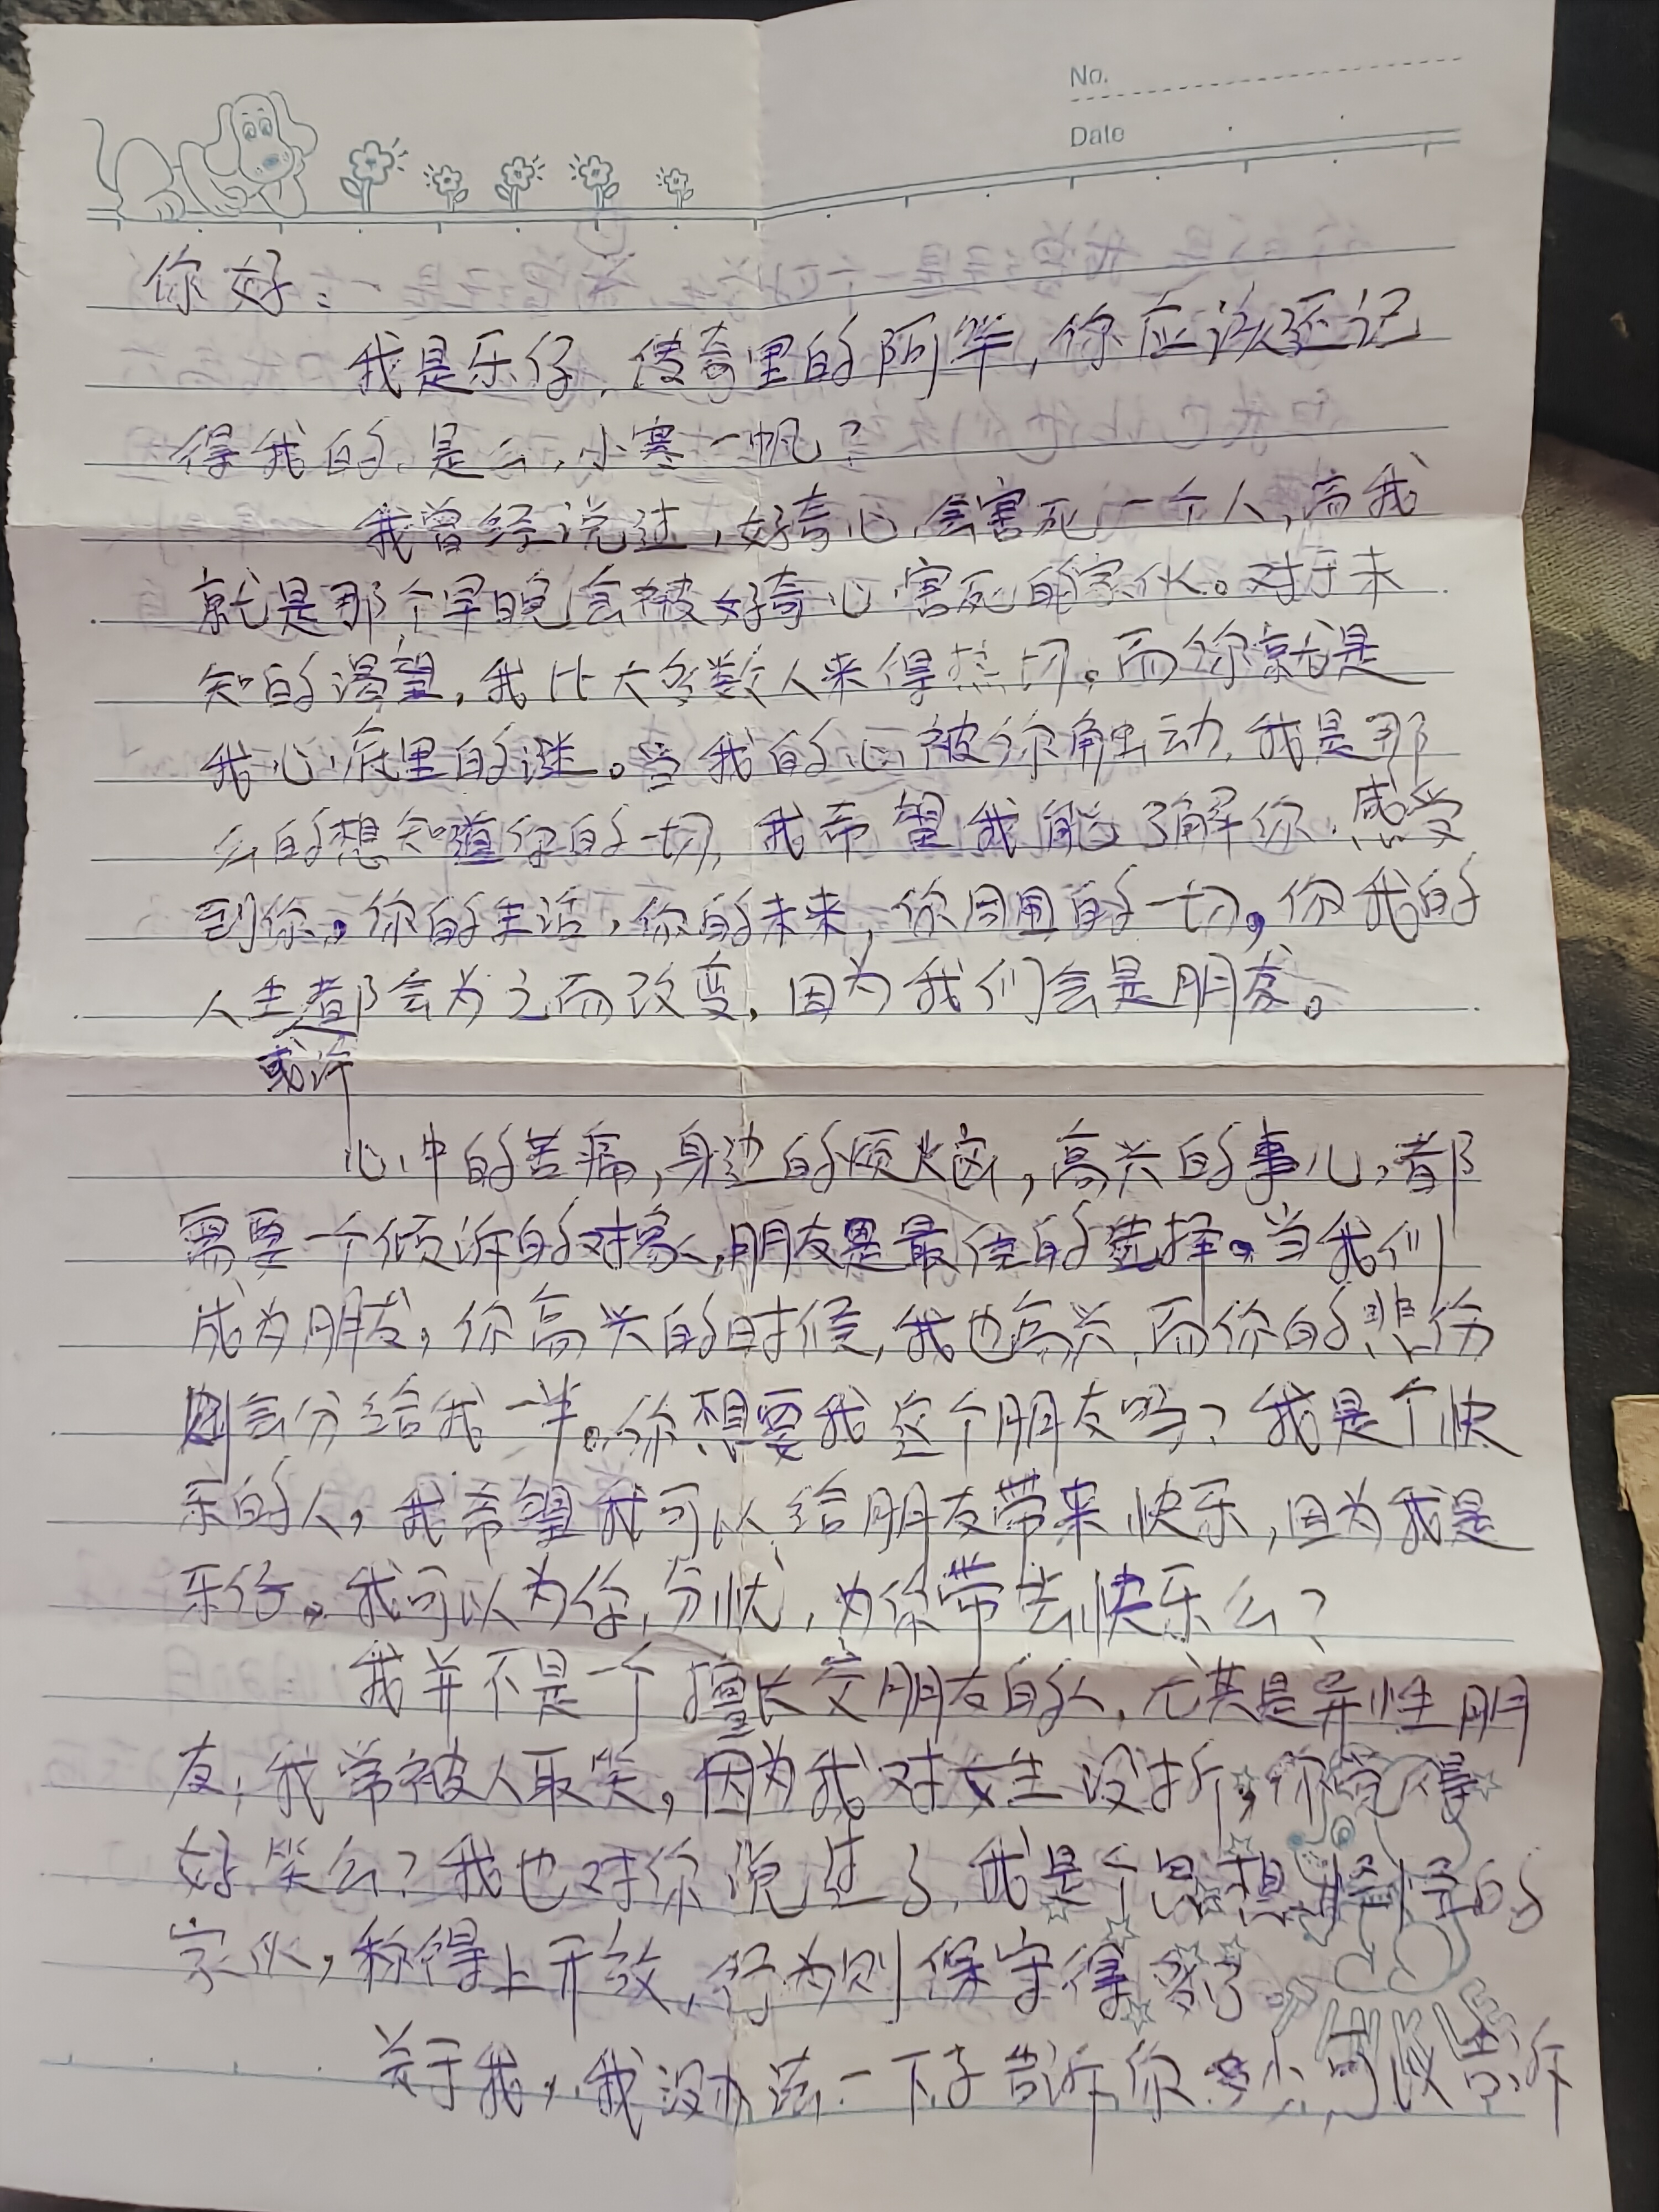 No.
Date
你好：
我是乐仔，传奇里的阿笨，你应该还记
得我的，是么，小寒一帆？
我曾经说过，好奇心会害死一个人，而我
就是那个早晚会被好奇心害死的家伙。对于未
知的渴望，我比大多数人来得热切。而你就是
我心底里的谜。当我的心被你触动，我是那
么的想知道你的一切，我希望我能了解你，感受
到你。你的生活，你的未来，你周围的一切。你我的
人生都会为之而改变，因为我们会是朋友。
或许
心中的苦痛，身边的烦恼，高兴的事儿，都
需要一个倾诉的对象，朋友是最佳的选择。当我们
成为朋友，你高兴的时候，我也高兴，而你的悲伤
则会分给我一半。你想要我这个朋友吗？我是个快
乐的人，我希望我可以给朋友带来快乐，因为我是
乐仔。我可以为你分忧，为你带去快乐么？
我并不是一个擅长交朋友的人，尤其是异性朋
友，我常被人取笑，因为我对女生没折，你觉得
好笑么？我也对你说过了，我是个思想怪怪的
家伙，称得上开放，行为则保守得
关于我，我没办法一下子告诉你多少，可以告诉